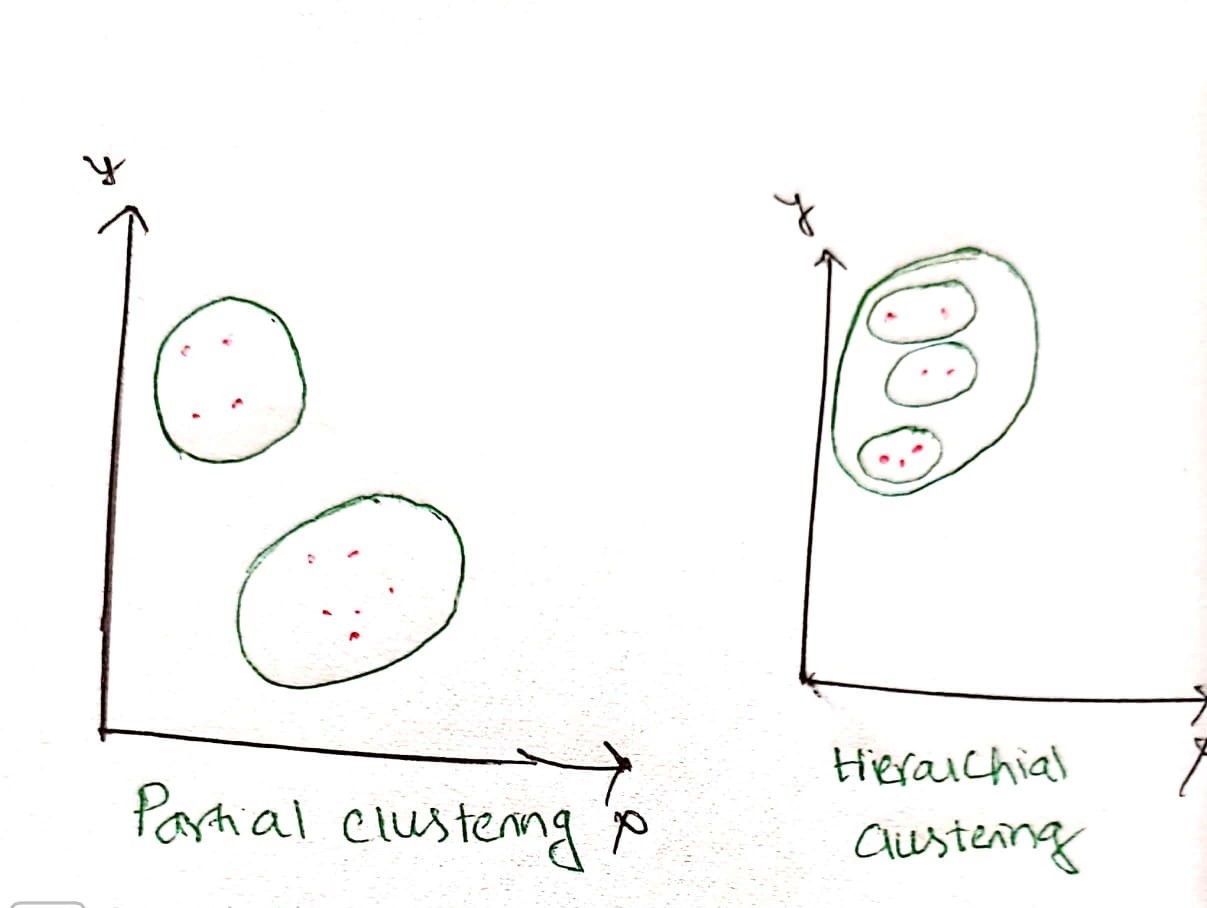 y
y
Partial clustering x
Hierarchial
clustering